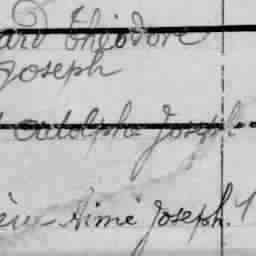 ard Théodore
Joseph
Adolphe Joseph
Aimé Joseph.